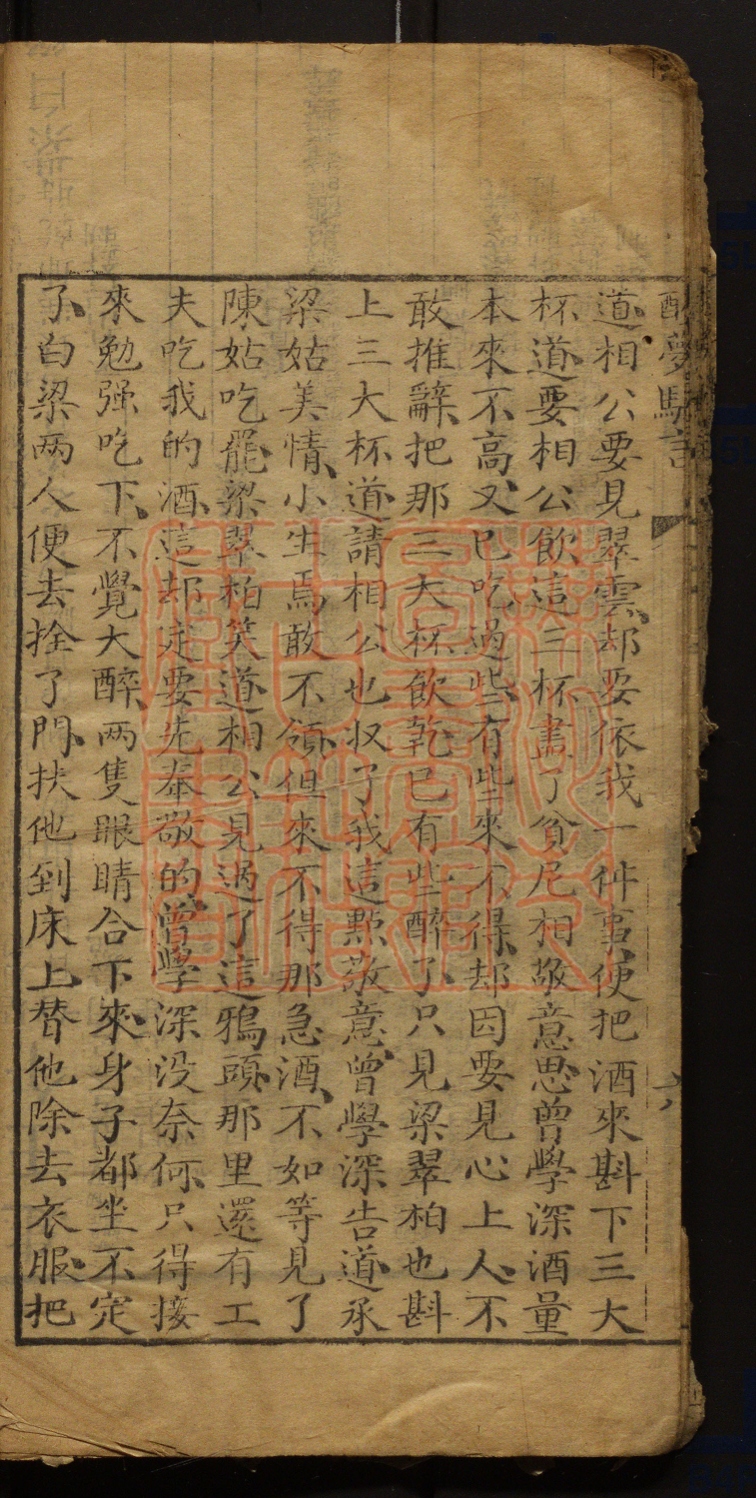 醒夢駢言
六
道相公要見翠雲却要依我一件事便把酒來斟下三大
杯道要相公飲這三杯盡了貧尼相敬意思曾學深酒量
本來不高又已吃過些有些來不得却因要見心上人不
敢推辭把那三大杯飲乾已有些醉了只見梁翠柏也斟
上三大杯道請相公也收了我這點敬意曾學深告道承
梁姑美情小生焉敢不領但來不得那急酒不如等見了
陳姑吃罷梁翠柏笑道相公見過了這鴉頭那里還有工
夫吃我的酒這却定要先奉敬的曾學深没奈何只得接
來勉强吃下不覺大醉两隻眼睛合下來身子都坐不定
了白梁两人便去拴了門扶他到床上替他除去衣服把